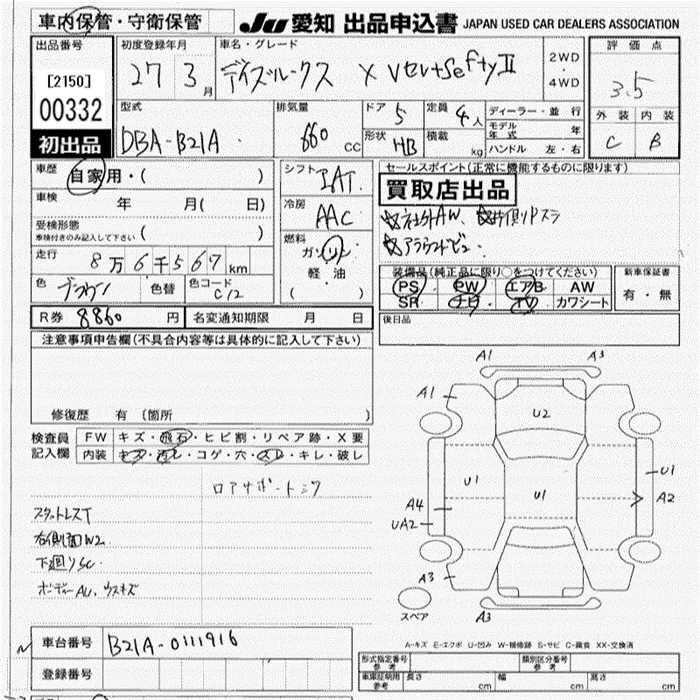 車内保管・守衛保管
JU 愛知 出品申込書 JAPAN USED CAR DEALERS ASSOCIATION
出品番号
[2150]
00332
初出品
初度登録年月
27 3月
車名・グレード
デイズルークス X Vセレ+Sefty II
2WD
・
4WD
評価点
3.5
外装 内装
C B
型式
DBA-B21A
排気量
660 CC
ドア 5
形状 HB
定員 4人
積載 kg
ディーラー・並行
モデル年式 年
ハンドル 左・右
車歴
自家用・( )
車検 年 月( 日)
受検形態
車検付きのみ記入して下さい ( )
走行 8万6千567km
色 ブラウン 色替 色コード C12
シフト IAT
冷房 AAC
燃料
ガソリン
軽油
( )
セールスポイント(正常に機能するものに限ります)
買取店出品
☆社外AW ☆片側Pスラ
☆アラウンドビュー
装備品(純正品に限り○をつけてください)
PS PW エアB AW
SR ナビ TV カワシート
新車保証書
有・無
R券 8860円 名変通知期限 月 日
後日品
注意事項申告欄(不具合内容等は具体的に記入して下さい)
修復歴 有 (箇所 )
検査員記入欄
FW キズ・飛石・ヒビ割・リペア跡・X要
内装 キズ・汚レ・コゲ・穴・スレ・キレ・破レ
スタットレスT
右側面W2
下廻りSC
ボディーAU、ウスキズ
A1 A3
A1
U2
U1 U1 U1
A2
A4
UA2
A3
A3
スペア
A-キズ E-エクボ U-凹み W-補修跡 S-サビ C-腐食 XX-交換済
車台番号 B21A-0111916
登録番号
形式指定番号 参考
類別区分番号 参考
車庫証明用参考 長さ cm 幅 cm 高さ cm